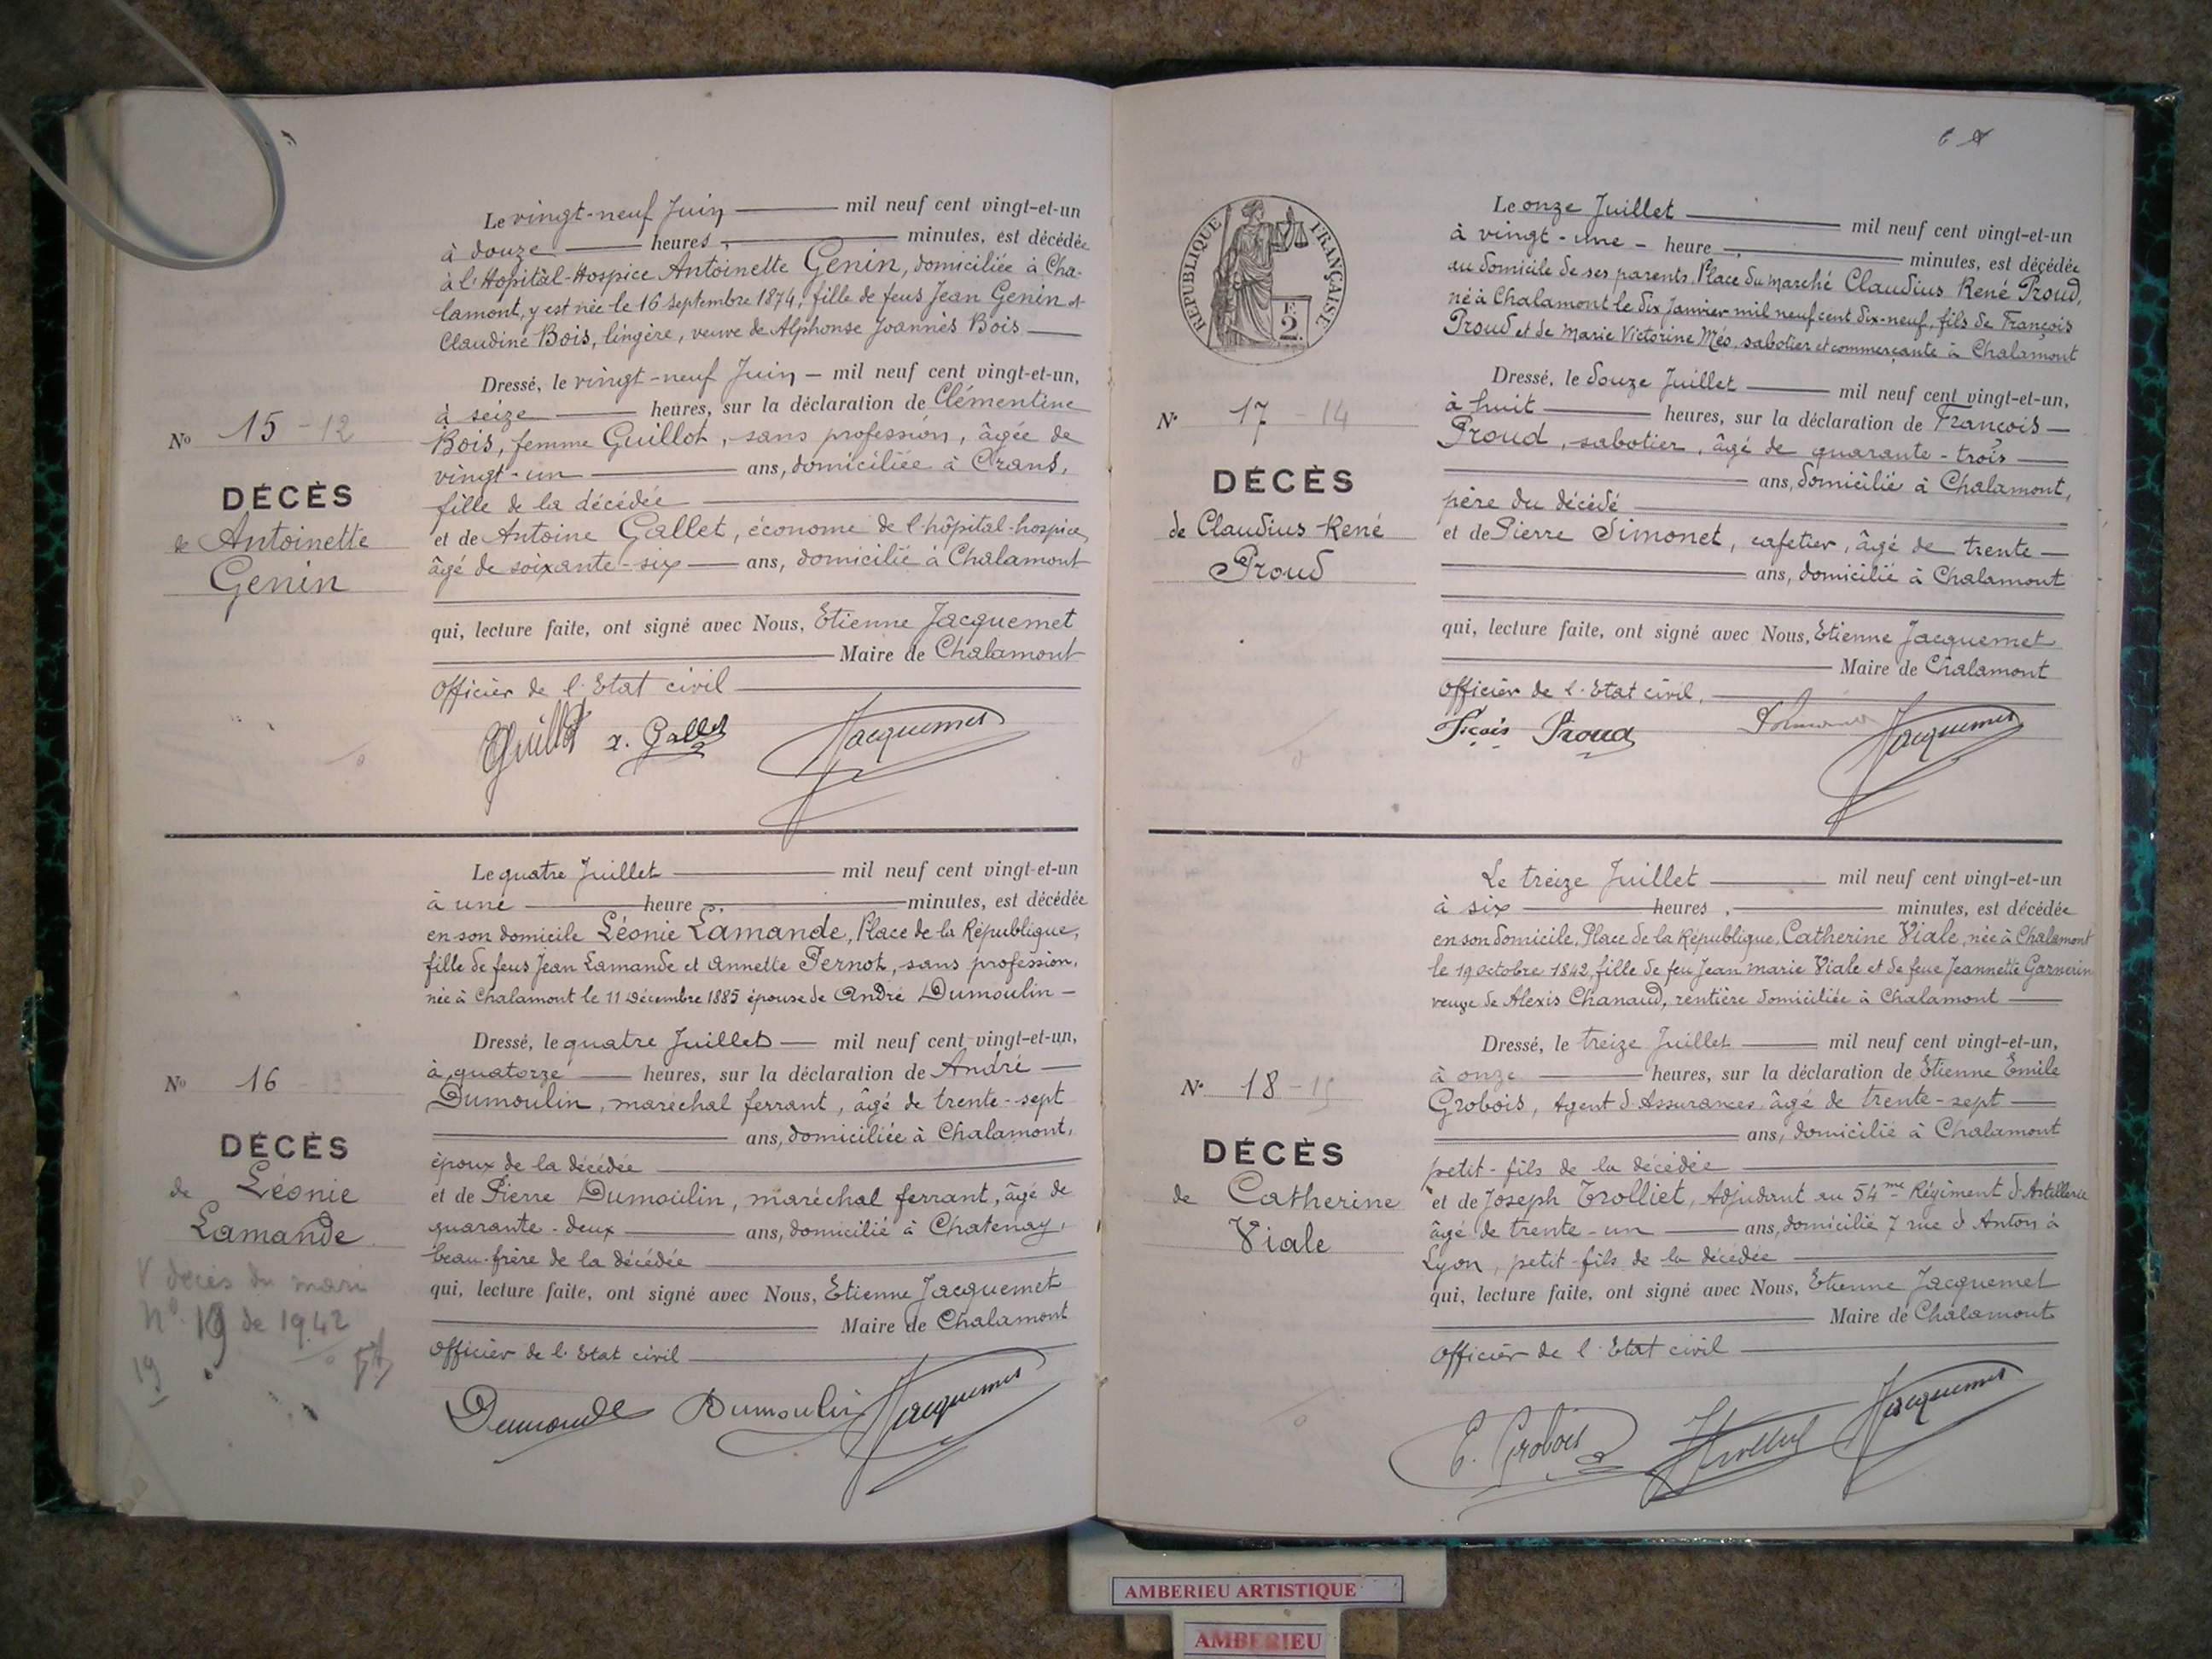 Le vingt-neuf Juin mil neuf cent vingt-et-un
à douze heures, minutes, est décédée
à l'Hôpital-Hospice Antoinette Genin, domiciliée à Cha-
lamont, y est née le 16 septembre 1874, fille de feus Jean Genin et
Claudine Bois, lingère, veuve de Alphonse Joannès Bois
Dressé, le vingt-neuf Juin mil neuf cent vingt-et-un,
à seize heures, sur la déclaration de Clémentine
Bois, femme Guillot, sans profession, âgée de
vingt-un ans, domiciliée à Crans,
fille de la décédée
et de Antoine Gallet, économe de l'hôpital-hospice,
âgé de soixante-six ans, domicilié à Chalamont
qui, lecture faite, ont signé avec Nous, Etienne Jacquemet
Maire de Chalamont
Officier de l'Etat civil
Guillot a. Gallet Jacquemet
No 15 - 12
DÉCÈS
de Antoinette
Genin
Le quatre Juillet mil neuf cent vingt-et-un
à une heure, minutes, est décédée
en son domicile Léonie Lamande, Place de la République,
fille de feus Jean Lamande et Annette Pernot, sans profession,
née à Chalamont le 11 Décembre 1885 épouse de André Dumoulin
Dressé, le quatre Juillet mil neuf cent vingt-et-un,
à quatorze heures, sur la déclaration de André
Dumoulin, maréchal ferrant, âgé de trente-sept
ans, domiciliée à Chalamont,
époux de la décédée
et de Pierre Dumoulin, maréchal ferrant, âgé de
quarante-deux ans, domicilié à Chatenay,
beau-frère de la décédée
qui, lecture faite, ont signé avec Nous, Etienne Jacquemet
Maire de Chalamont
Officier de l'Etat civil
Dumoulin Jacquemet
No 16 13
DÉCÈS
de Léonie
Lamande
V décès du mari
n° 19 de 1942
19
RÉPUBLIQUE FRANÇAISE
F.
2.
Le onze Juillet mil neuf cent vingt-et-un
à vingt-une heure, minutes, est décédée
au domicile de ses parents Place du marché Claudius René Proud,
né à Chalamont le dix Janvier mil neuf cent dix-neuf, fils de François
Proud et de Marie Victorine Méo, sabotier et commerçante à Chalamont
Dressé, le douze Juillet mil neuf cent vingt-et-un,
à huit heures, sur la déclaration de François
Proud, sabotier, âgé de quarante-trois
ans, domicilié à Chalamont,
père du décédé
et de Pierre Simonet, cafetier, âgé de trente
ans, domicilié à Chalamont
qui, lecture faite, ont signé avec Nous, Etienne Jacquemet
Maire de Chalamont
Officier de l'Etat civil.
Fçois Proud Jacquemet
No 17 - 14
DÉCÈS
de Claudius René
Proud
Le treize Juillet mil neuf cent vingt-et-un
à six heures, minutes, est décédée
en son domicile, Place de la République, Catherine Viale, née à Chalamont
le 19 octobre 1842, fille de feu Jean marie Viale et de feue Jeannette Garnerin
veuve de Alexis Chanaud, rentière domiciliée à Chalamont
Dressé, le treize Juillet mil neuf cent vingt-et-un,
à onze heures, sur la déclaration de Etienne Emile
Grobois, Agent d'Assurances, âgé de trente-sept
ans, domicilié à Chalamont
petit-fils de la décédée
et de Joseph Trolliet, Adjudant au 54me Régiment d'Artillerie
âgé de trente-un ans, domicilié 7 rue d'Anton à
Lyon, petit-fils de la décédée
qui, lecture faite, ont signé avec Nous, Etienne Jacquemet
Maire de Chalamont
Officier de l'Etat civil
E. Grobois JTrolliet Jacquemet
No 18 - 15
DÉCÈS
de Catherine
Viale
AMBERIEU ARTISTIQUE
AMBERIEU